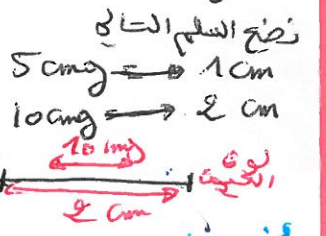 نضع السلم التالي
5 cmg → 1 cm
10 cmg → 2 cm
10 cmg
2 cm